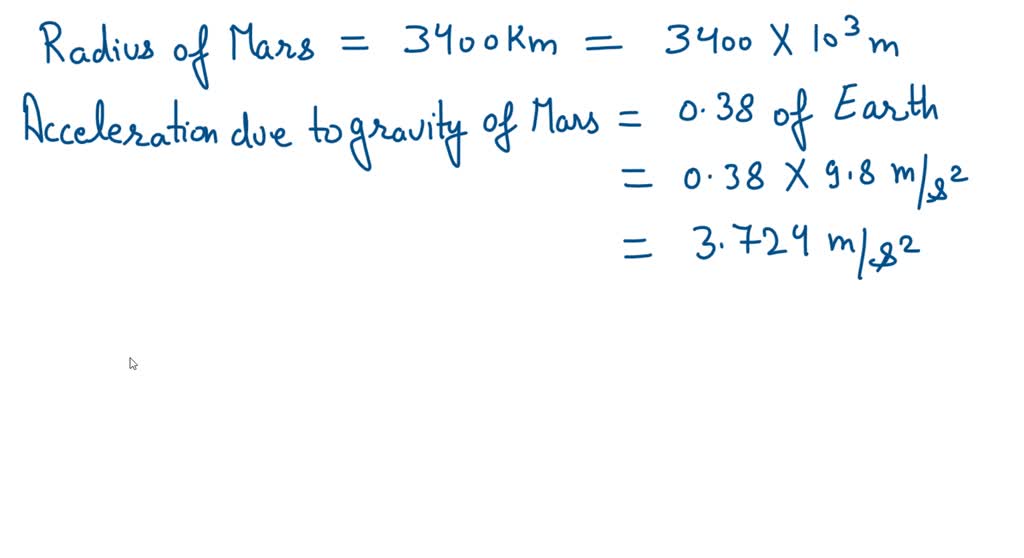 Radius of Mars = 3400Km = 3400 X 10³ m
Acceleration due to gravity of Mars = 0.38 of Earth
= 0.38 X 9.8 m/s²
= 3.724 m/s²